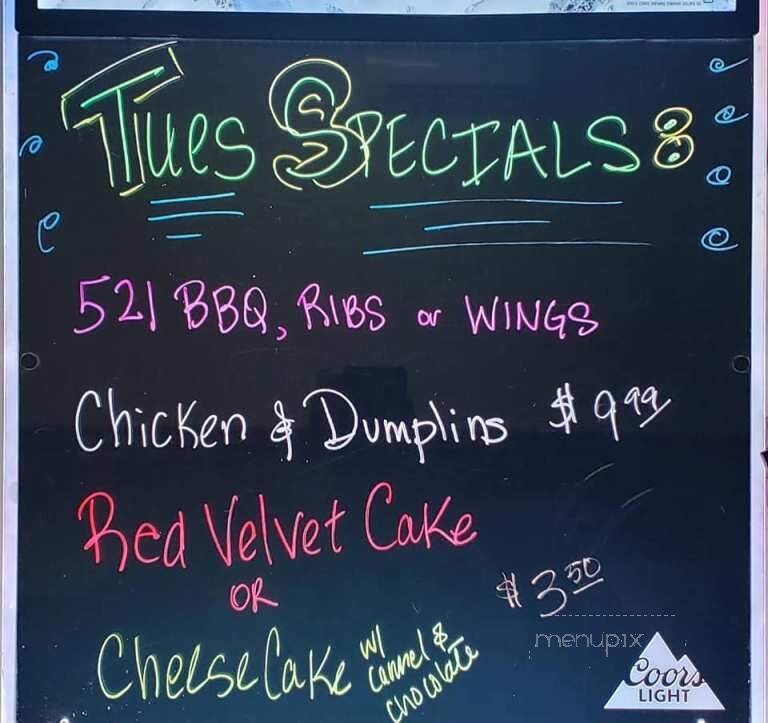 Tues SPECIALS:
521 BBQ, RIBS or WINGS
Chicken & Dumplins $9.99
Red Velvet Cake
OR
$3.50
CheeseCake w/ carmel & chocolate
menupix
Coors
LIGHT